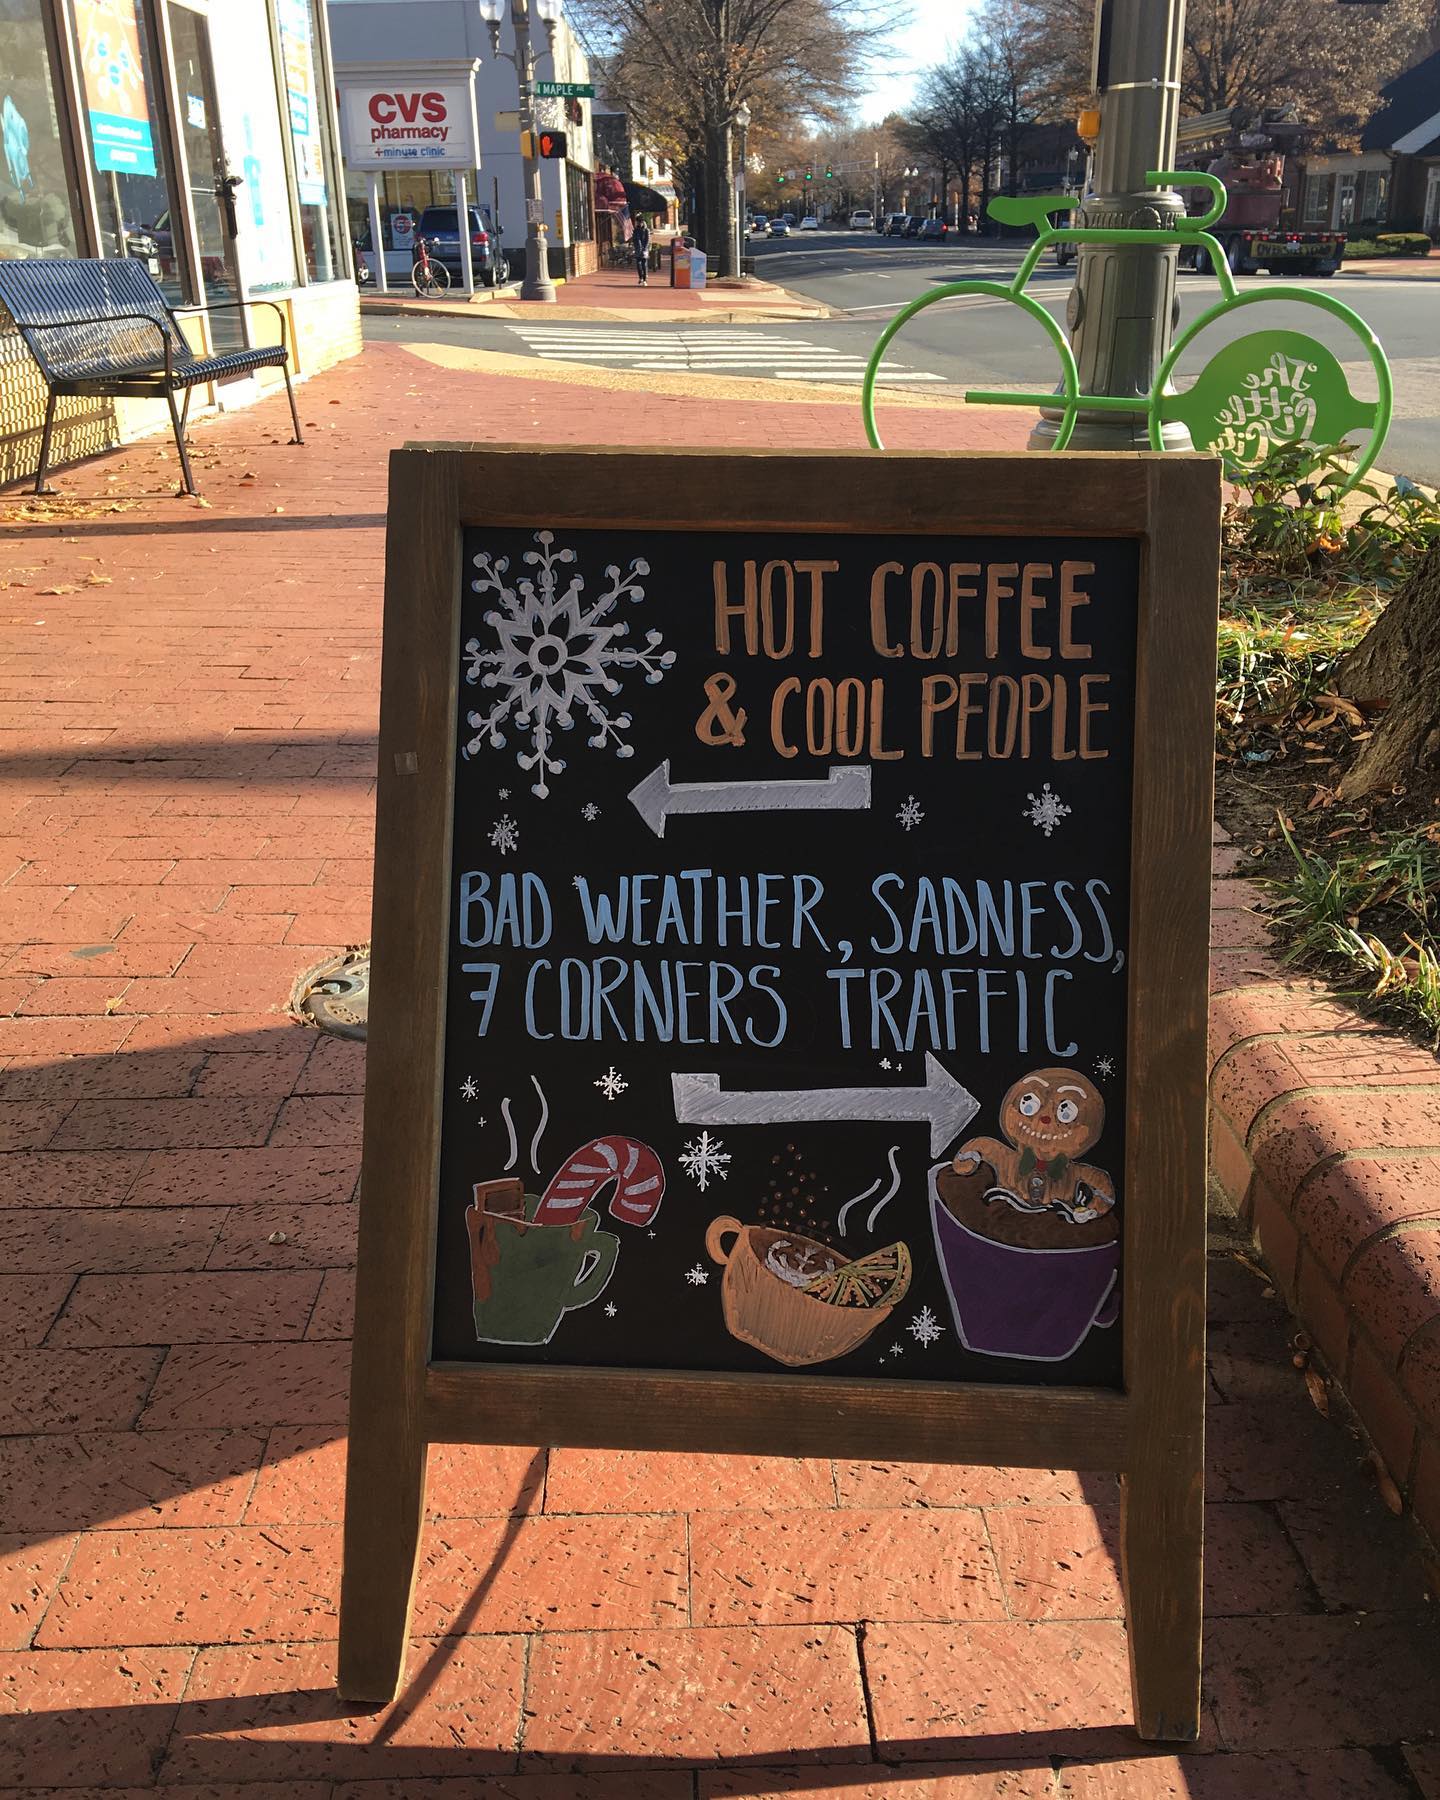 CVS
pharmacy
minute clinic
N MAPLE AVE
The
Little
City
HOT COFFEE
& COOL PEOPLE
BAD WEATHER, SADNESS,
7 CORNERS TRAFFIC